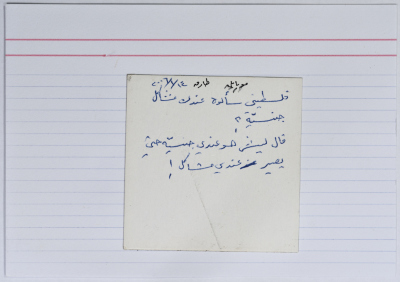 فلسطيني سألوه عندك مشاكل
جنسيّة ؟
قال ليش هو عندي جنسيّه حتى
يصير عندي مشاكل !